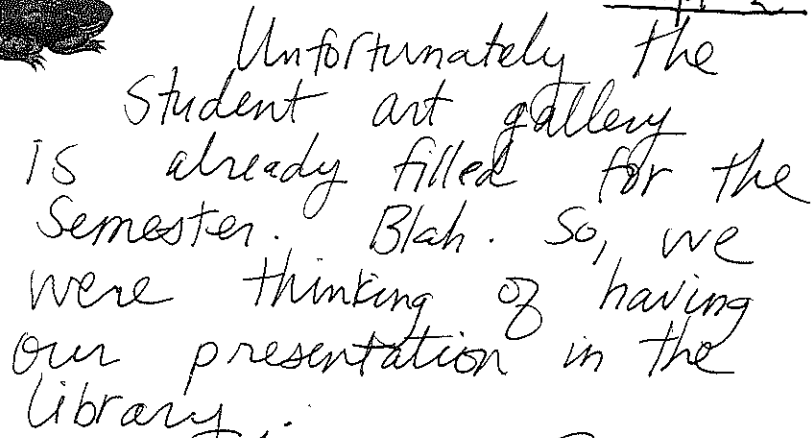 Unfortunately the
student art gallery
is already filled for the
semester. Blah. So, we
were thinking of having
our presentation in the
library.